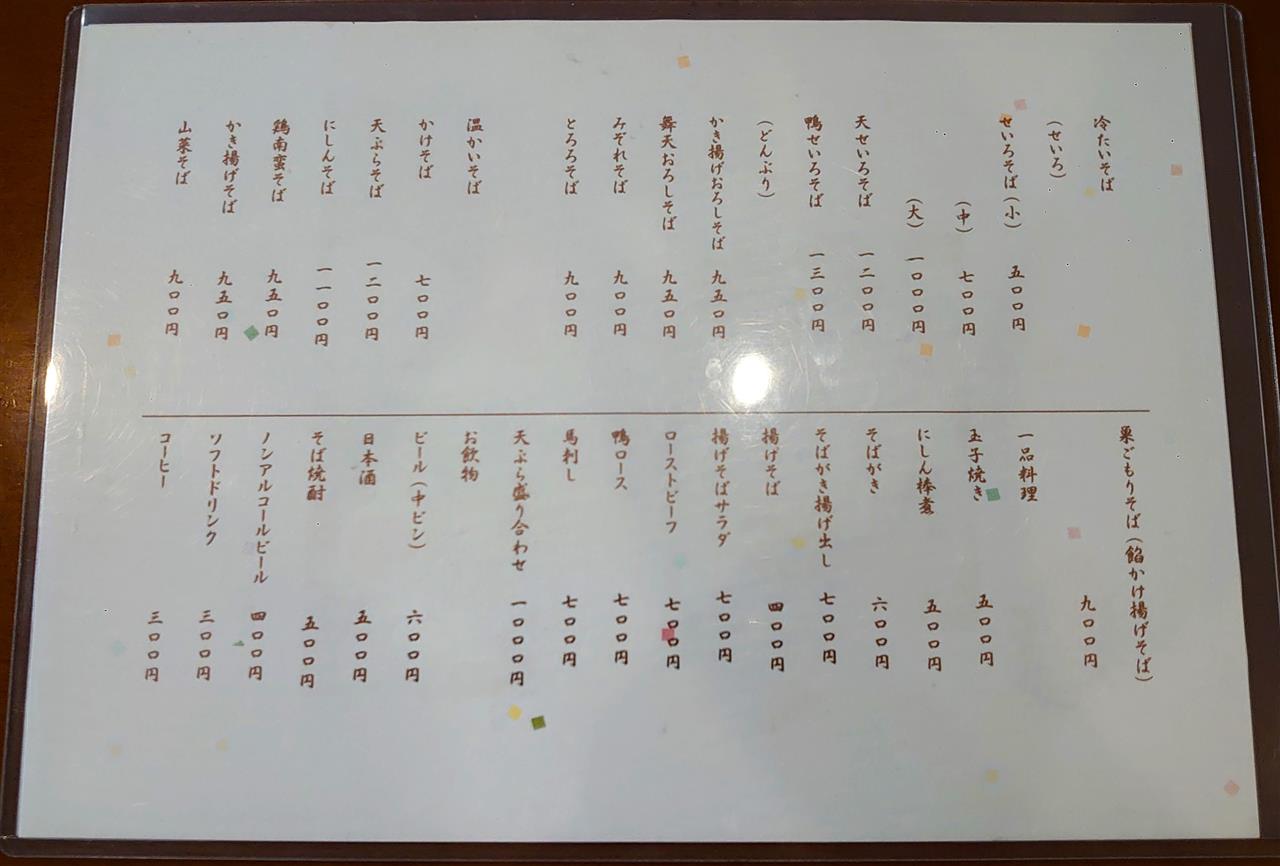 冷たいそば
(せいろ)
せいろそば(小) 五〇〇円
(中) 七〇〇円
(大) 一〇〇〇円
天せいろそば 一二〇〇円
鴨せいろそば 一三〇〇円
(どんぶり)
かき揚げおろしそば 九五〇円
舞天おろしそば 九五〇円
みぞれそば 九〇〇円
とろろそば 九〇〇円
温かいそば
かけそば 七〇〇円
天ぷらそば 一二〇〇円
にしんそば 一一〇〇円
鶏南蛮そば 九五〇円
かき揚げそば 九五〇円
山菜そば 九〇〇円
巣ごもりそば(餡かけ揚げそば)
九〇〇円
一品料理
玉子焼き 五〇〇円
にしん棒煮 五〇〇円
そばがき 六〇〇円
そばがき揚げ出し 七〇〇円
揚げそば 四〇〇円
揚げそばサラダ 七〇〇円
ローストビーフ 七〇〇円
鴨ロース 七〇〇円
馬刺し 七〇〇円
天ぷら盛り合わせ 一〇〇〇円
お飲物
ビール(中ビン) 六〇〇円
日本酒 五〇〇円
そば焼酎 五〇〇円
ノンアルコールビール 四〇〇円
ソフトドリンク 三〇〇円
コーヒー 三〇〇円